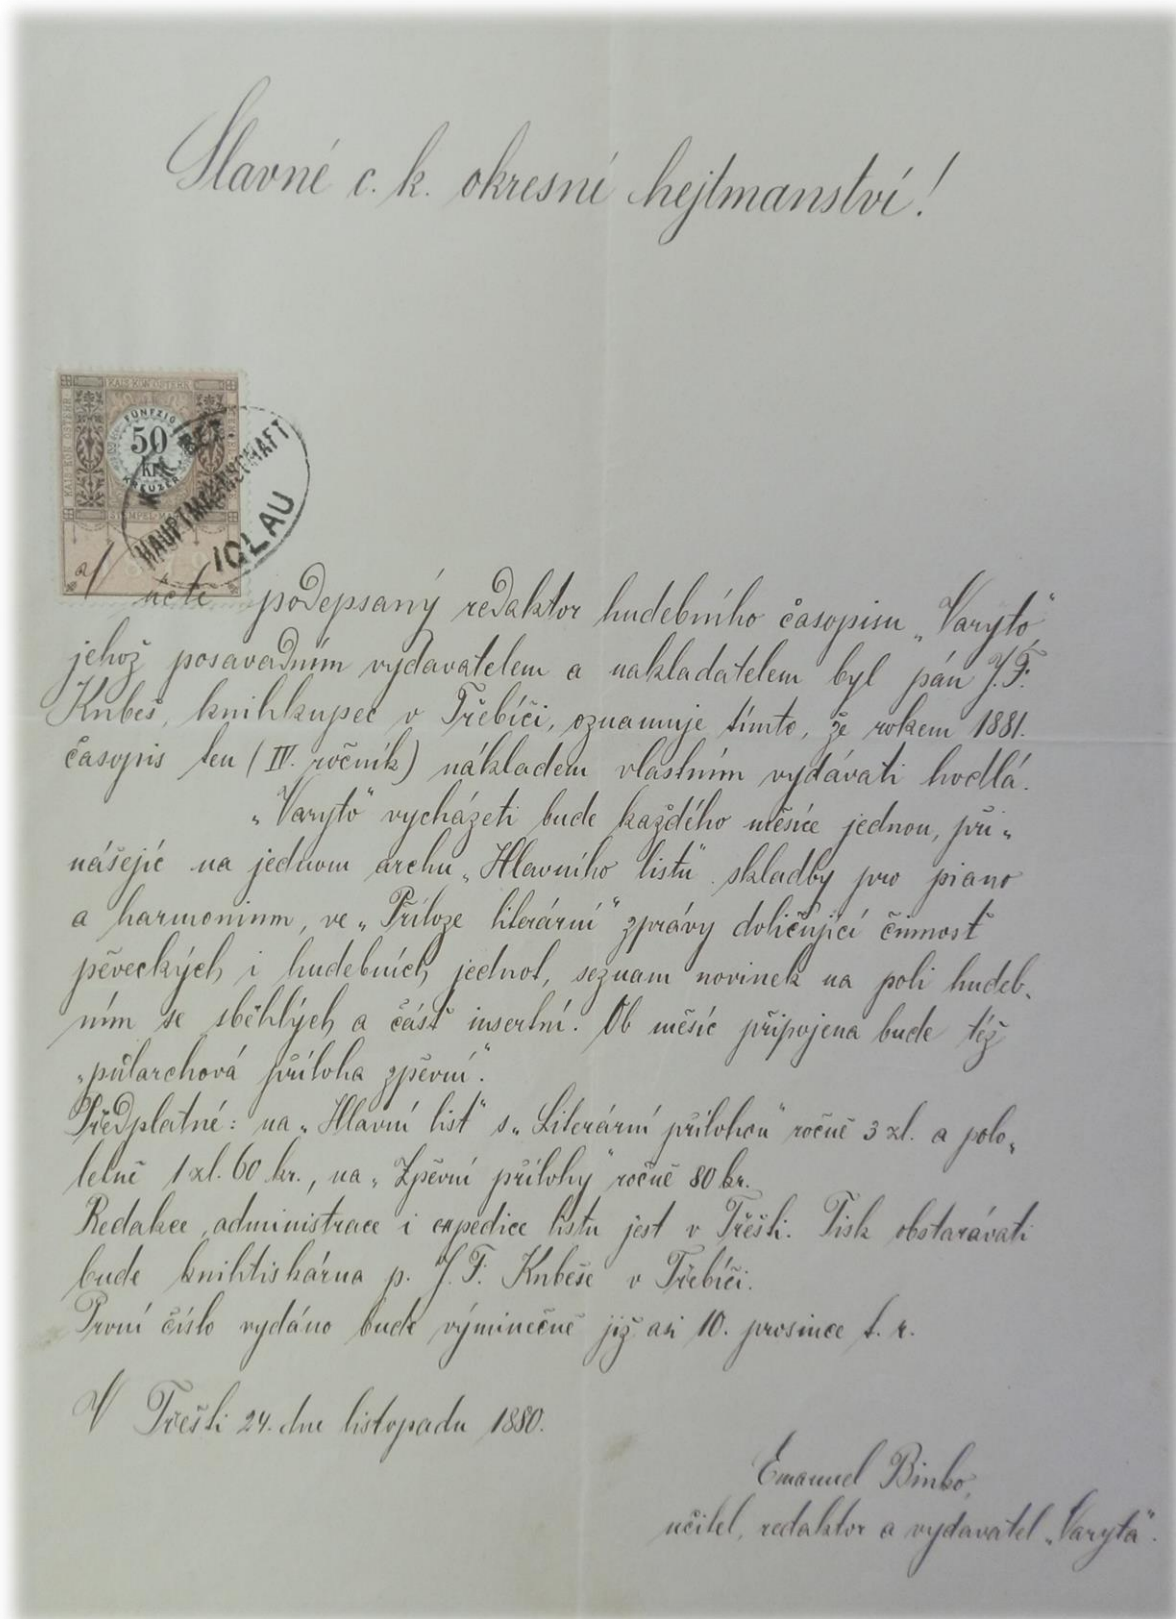 Slavné c. k. okresní hejtmanství!
KAIS. KÖN. ÖSTERR.
KAIS. KÖN. ÖSTERR.
FÜNFZIG
50
KR.
KREUZER
STEMPEL-MARKE
K. K. BEZ.
HAUPTMANNSCHAFT
IGLAU
V úctě podepsaný redaktor hudebního časopisu „Varyto“,
jehož posavadním vydavatelem a nakladatelem byl pán J. F.
Kubeš, knihkupec v Třebíči, oznamuje tímto, že rokem 1881.
časopis ten (IV. ročník) nákladem vlastním vydávati hodlá.
„Varyto“ vycházeti bude každého měsíce jednou, při„
nášejíc na jednom archu „Hlavního listu“ skladby pro piano
a harmonium, ve „Příloze literární“ zprávy doličující činnosť
pěveckých i hudebních jednot, seznam novinek na poli hudeb„
ním se sběhlých a část insertní. Ob měsíc připojena bude též
„půlarchová příloha zpěvní“.
Předplatné: na „Hlavní list“ s „Literární přílohou“ ročně 3 zl. a polo„
letně 1 zl. 60 kr., na „Zpěvní přílohy“ ročně 80 kr.
Redakce, administrace i expedice listu jest v Třešti. Tisk obstarávati
bude knihtiskárna p. J. F. Kubeše v Třebíči.
První číslo vydáno bude výminečně již asi 10. prosince t. r.
V Třešti 24. dne listopadu 1880.
Emanuel Binko,
učitel, redaktor a vydavatel „Varyta“.